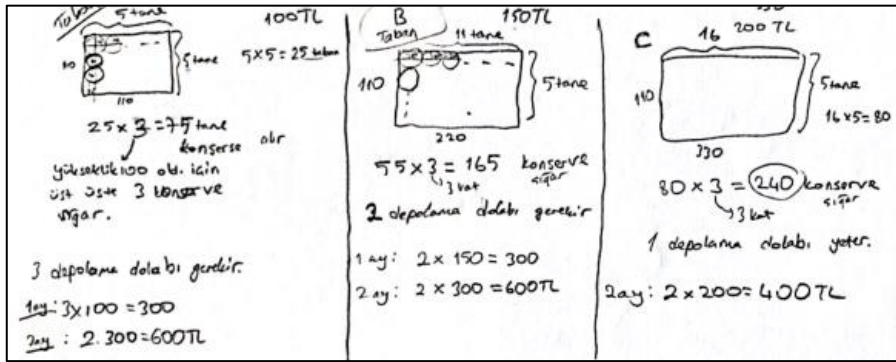 Taban
5 tane
100TL
5 tane
5x5=25 taban
110
25 x 3 = 75 tane
konserve alır
yükseklik 100 old. için
üst üste 3 konserve
sığar.
3 depolama dolabı gerekir.
1ay: 3x100 = 300
2ay : 2.300=600TL
B
Taban
150TL
11 tane
110
5 tane
220
55 x 3 = 165 konserve
sığar
3 kat
2 depolama dolabı gerekir
1 ay: 2 x 150 = 300
2 ay: 2 x 300 = 600TL
C
16
200 TL
110
5 tane
16x5=80
330
80 x 3 = 240 konserve
sığar
3 kat
1 depolama dolabı yeter.
2ay: 2 x 200 = 400TL